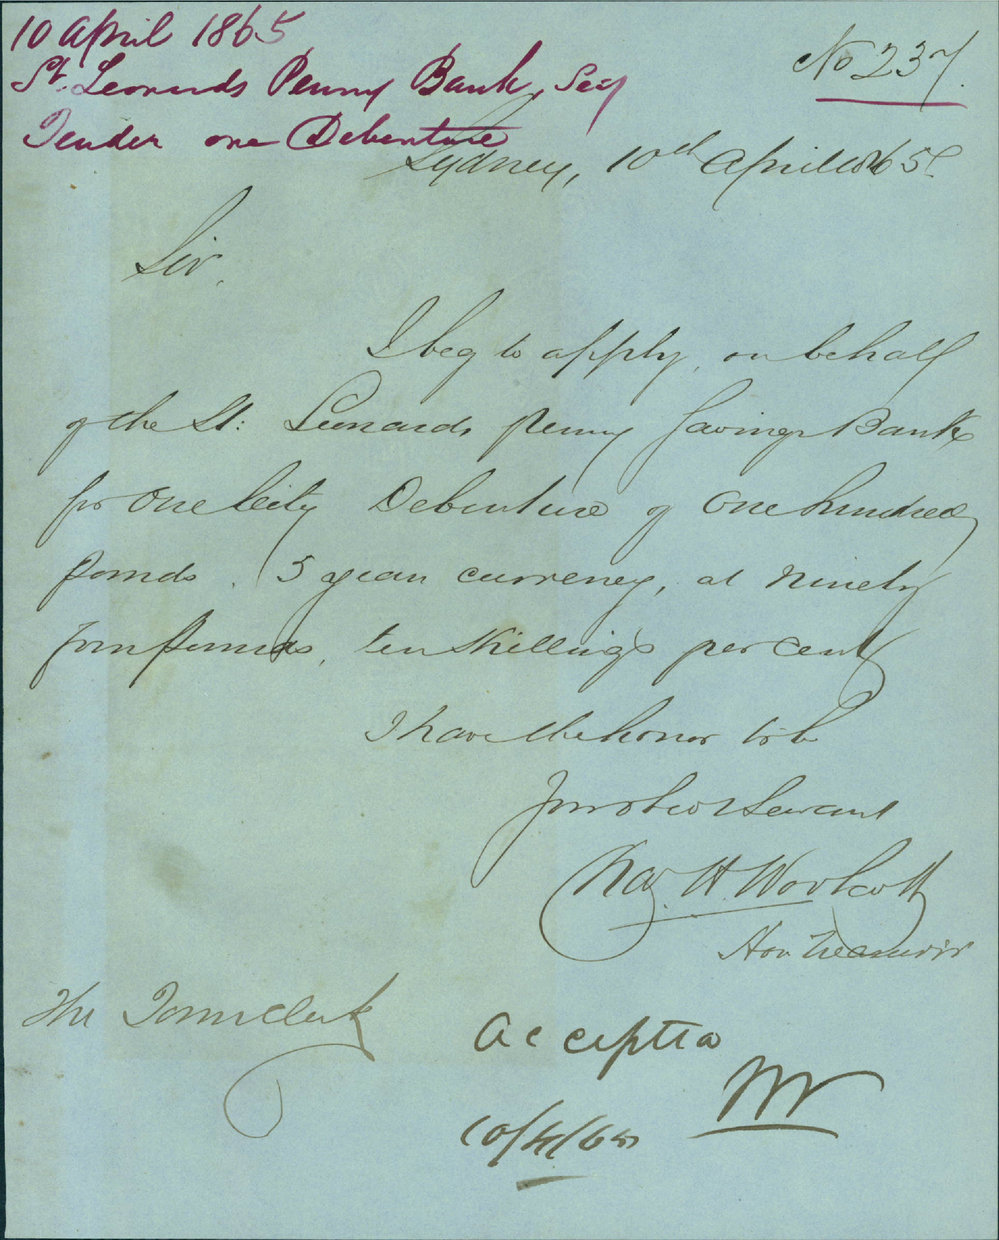 10 April 1865
St. Leonards Penny Bank, Sey
Tender one Debenture
No 237.
Sydney, 10th April 1865
Sir,
I beg to apply, on behalf
of the St: Leonards Penny Savings Bank
for One City Debenture of One hundred
pounds. 5 year currency, at ninety
four pounds, ten shillings per cent
I have the honor to be
Your obedt Servant
W. H. Woolcott
Hon Treasurer
The Town Clerk
Accepted
10/4/65